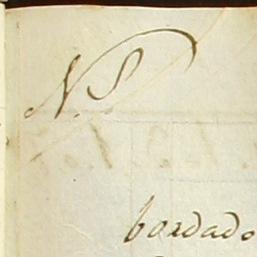 N. S
bordado